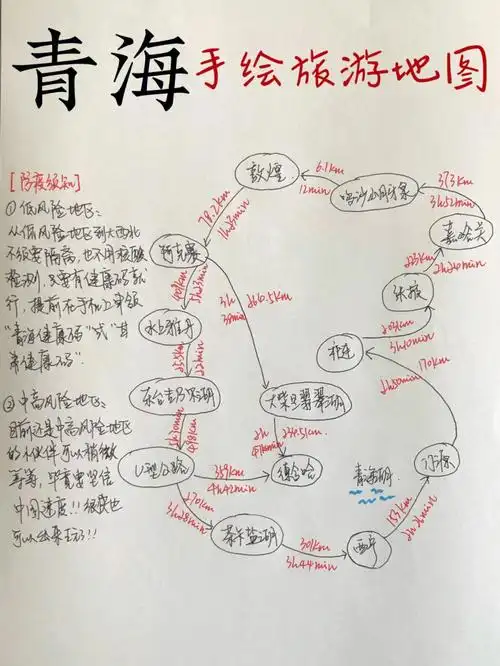 青海手绘旅游地图
[防疫须知]
① 低风险地区:
从低风险地区到大西北
不需要隔离,也不用核酸
检测,只要有健康码就
行,提前在手机上申领
"青海健康码"或"甘
肃健康码".
② 中高风险地区:
目前还是中高风险地区
的小伙伴可以稍微
等等,毕竟要坚信
中国速度!!很快也
可以出来玩了!!
敦煌
6.1km
12min
鸣沙山月牙泉
373km
3h52min
嘉峪关
223km
2h24min
张掖
203km
3h10min
祁连
170km
2h50min
门源
153km
2h26min
西宁
301km
3h44min
茶卡盐湖
270km
3h28min
U型公路
359km
4h42min
德令哈
78.2km
1h03min
阿克塞
1h23min
水上雅丹
22min
东台吉乃尔湖
3h
260.5km
大柴旦翡翠湖
2h
青海湖